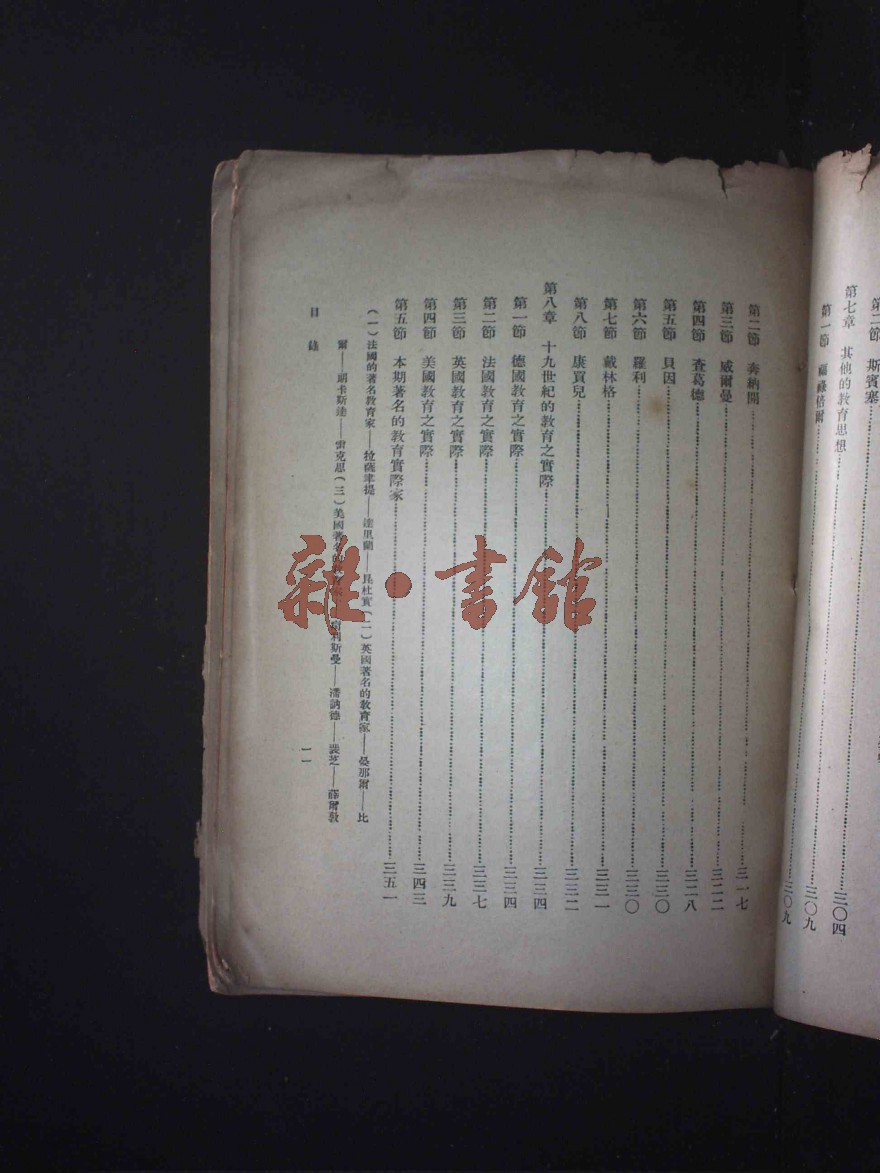 第二節 斯賓塞
三〇九
第七章 其他的教育思想 三〇四
第一節 三〇九
第二節 納開 三一七
第三節 威爾曼 三二二
第四節 查葛德 三二八
第五節 貝因 三三〇
第六節 羅利 三三〇
第七節 戴林格 三三一
第八節 康買兒 三三二
第八章 十九世紀的教育之實際 三三四
第一節 德國教育之實際 三三四
第二節 法國教育之實際 三三七
第三節 英國教育之實際 三三九
第四節 美國教育之實際 三四三
第五節 本期著名的教育實際家 三五一
(一)法國的著名教育家——拉薩 提——達里蘭—— 杜賓(二)英國著名的教育家——曼那爾——比
爾——朋卡斯達——雷克思(三)美國著名的 利斯曼——潘訥德——裴芝——薛爾敦
目錄
一一
雜·書館